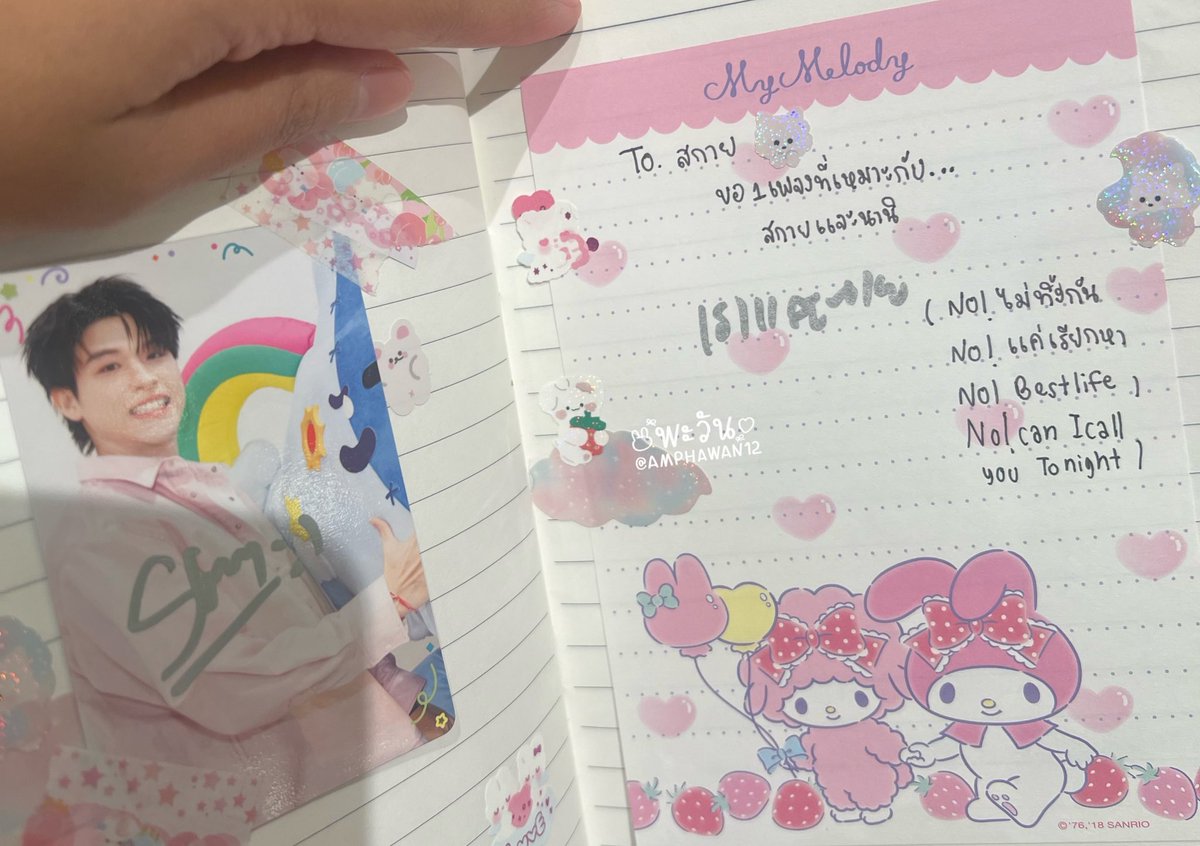 My Melody
To. สกาย
ขอ 1 เพลงที่เหมาะกับ...
สกายและนานิ
( No! ไม่ทิ้งกัน
No! แค่เรียกหา
No! Best life
No! can I call
you Tonight )
พะวัน
@AMPHAWAN12
LOVE
©'76,'18 SANRIO